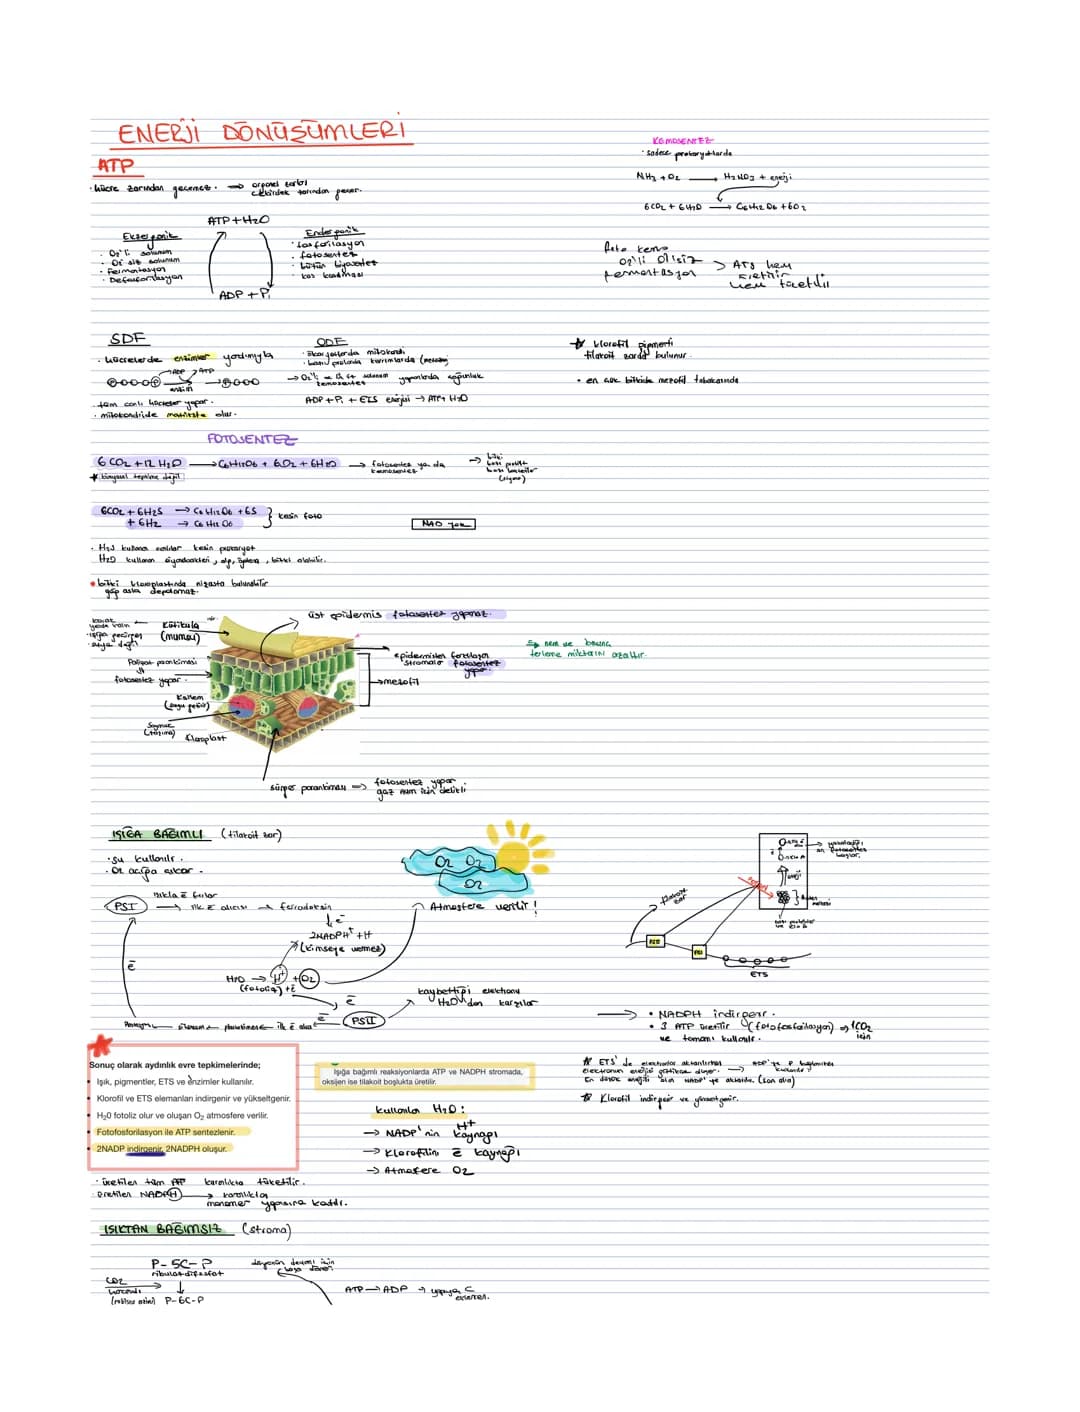 ENERJİ DÖNÜŞÜMLERİ
ATP
· hücre zarından geçemez. ⇒ organel zarı
çekirdek zarından geçer.
ATP + H2O
Ekzergonik
· O2'li solunum
· O2'siz solunum
· Fermentasyon
· Defosforilasyon
ADP + Pi
Endergonik
· fosforilasyon
· fotosentez
· bütün biyosentez
· kas kasılması
KEMOSENTEZ
· sadece prokaryotlarda
NH3 + O2 → HNO3 + enerji
6CO2 + 6H2O → C6H12O6 + 6O2
foto kemo
O2'li O2siz
fermentasyon
> ATP hem
üretilir
hem tüketilir
SDF
· hücrelerde enzimler yardımıyla
ADP ATP
enzim
· tüm canlı hücreler yapar.
· mitokondride matrikste olur.
ODF
· ökaryotlarda mitokondri
→ O2'li - O2'siz solunum
kemosentez
ADP + Pi + ETS enerjisi → ATP + H2O
★ klorofil pigmenti
tilakoit zarda bulunur.
• en çok bitkide mezofil tabakasında
FOTOSENTEZ
6 CO2 + 12 H2O → C6H12O6 + 6O2 + 6H2O → fotosentez ya da
kemosentez
→ bitki
bazı protist
bazı bakteriler
(siyano)
★ kimyasal tepkime değil
6CO2 + 6H2S → C6H12O6 + 6S
+ 6H2 → C6H12O6
} kesin foto
NAD yok
· H2S kullanan canlılar kesin prokaryot
H2O kullanan siyanobakteri, alg, öglena, bitki olabilir.
• bitki kloroplastında nişasta bulunabilir
alg asla depolamaz.
üst epidermis fotosentez yapmaz.
Kütikula
(mumsu)
Palizat parankiması
fotosentez yapar.
Ksilem
(su)
(taşıma)
Kloroplast
epidermisten farklılaşan
stomalar fotosentez
yapar.
→ mezofil
nem ve basınç
terleme miktarını azaltır.
sünger parankiması ⇒ fotosentez yapar
gaz alım için delikli
IŞIĞA BAĞIMLI (tilakoit zar)
· su kullanılır.
· O2 açığa çıkar.
O2 O2
O2
Atmosfere verilir!
ışıkla ē fırlar
PSI → ilk ē alıcısı → ferrodoksin
↓ ē
2NADPH + H
(kimseye vermez)
ē
H2O → H+ + O2
(fotoliz) + ē
ē
plastosiyanin ← sitokrom ← plastokinon ← ilk ē alıcı ← ē PSII
kaybettiği elektronu
H2O'dan karşılar
tilakoit
zar
PSII
PSI
ETS
→ • NADPH indirgenir.
• 3 ATP üretilir (fotofosforilasyon) → 1CO2
için
ve tamamı kullanılır.
Sonuç olarak aydınlık evre tepkimelerinde;
• Işık, pigmentler, ETS ve enzimler kullanılır.
• Klorofil ve ETS elemanları indirgenir ve yükseltgenir.
• H2O fotoliz olur ve oluşan O2 atmosfere verilir.
• Fotofosforilasyon ile ATP sentezlenir.
• 2NADP indirgenir, 2NADPH oluşur.
Işığa bağımlı reaksiyonlarda ATP ve NADPH stromada,
oksijen ise tilakoit boşlukta üretilir.
★ ETS'de elektronlar aktarılırken
elektronun enerjisi gittikçe düşer. → ADP'ye P bağlanırken
kullanılır
En düşük enerjili olan NADP'ye aktarılır. (son alıcı)
★ Klorofil indirgenir ve yükseltgenir.
kullanılan H2O:
→ NADP'nin H+ kaynağı
→ Klorofilin ē kaynağı
→ Atmosfere O2
· üretilen tüm ATP karanlıkta tüketilir.
· üretilen NADPH → karanlıkta
monomer yapısına katılır.
IŞIKTAN BAĞIMSIZ (stroma)
P-5C-P
ribulozdifosfat
CO2
(rubisco enzimi) P-6C-P
döngünün devamı için
ATP → ADP → yapıya C
eklenen.